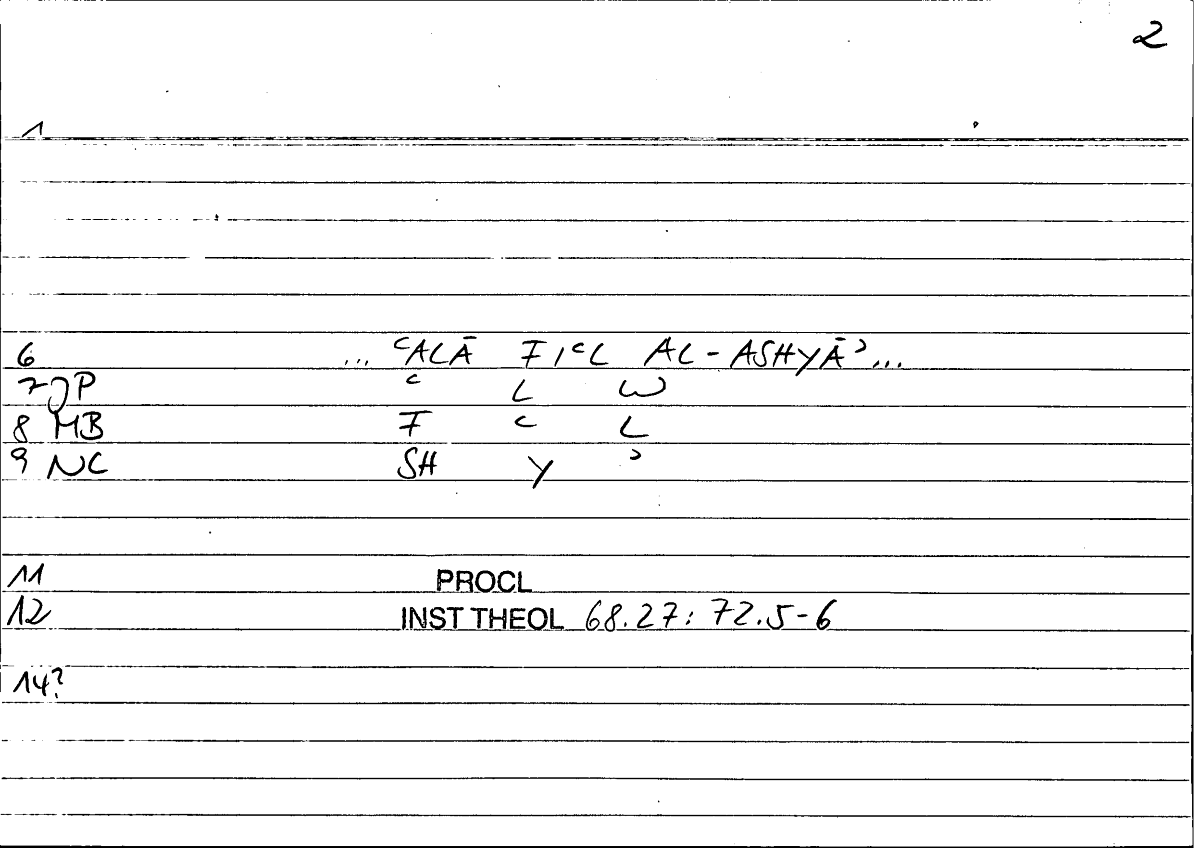 2
1
6 ... ʿALĀ FIʿL AL-ASHYĀʾ...
7 JP ʿ L W
8 MB F ʿ L
9 NC SH Y ʾ
11 PROCL
12 INST THEOL 68.27: 72.5-6
14?